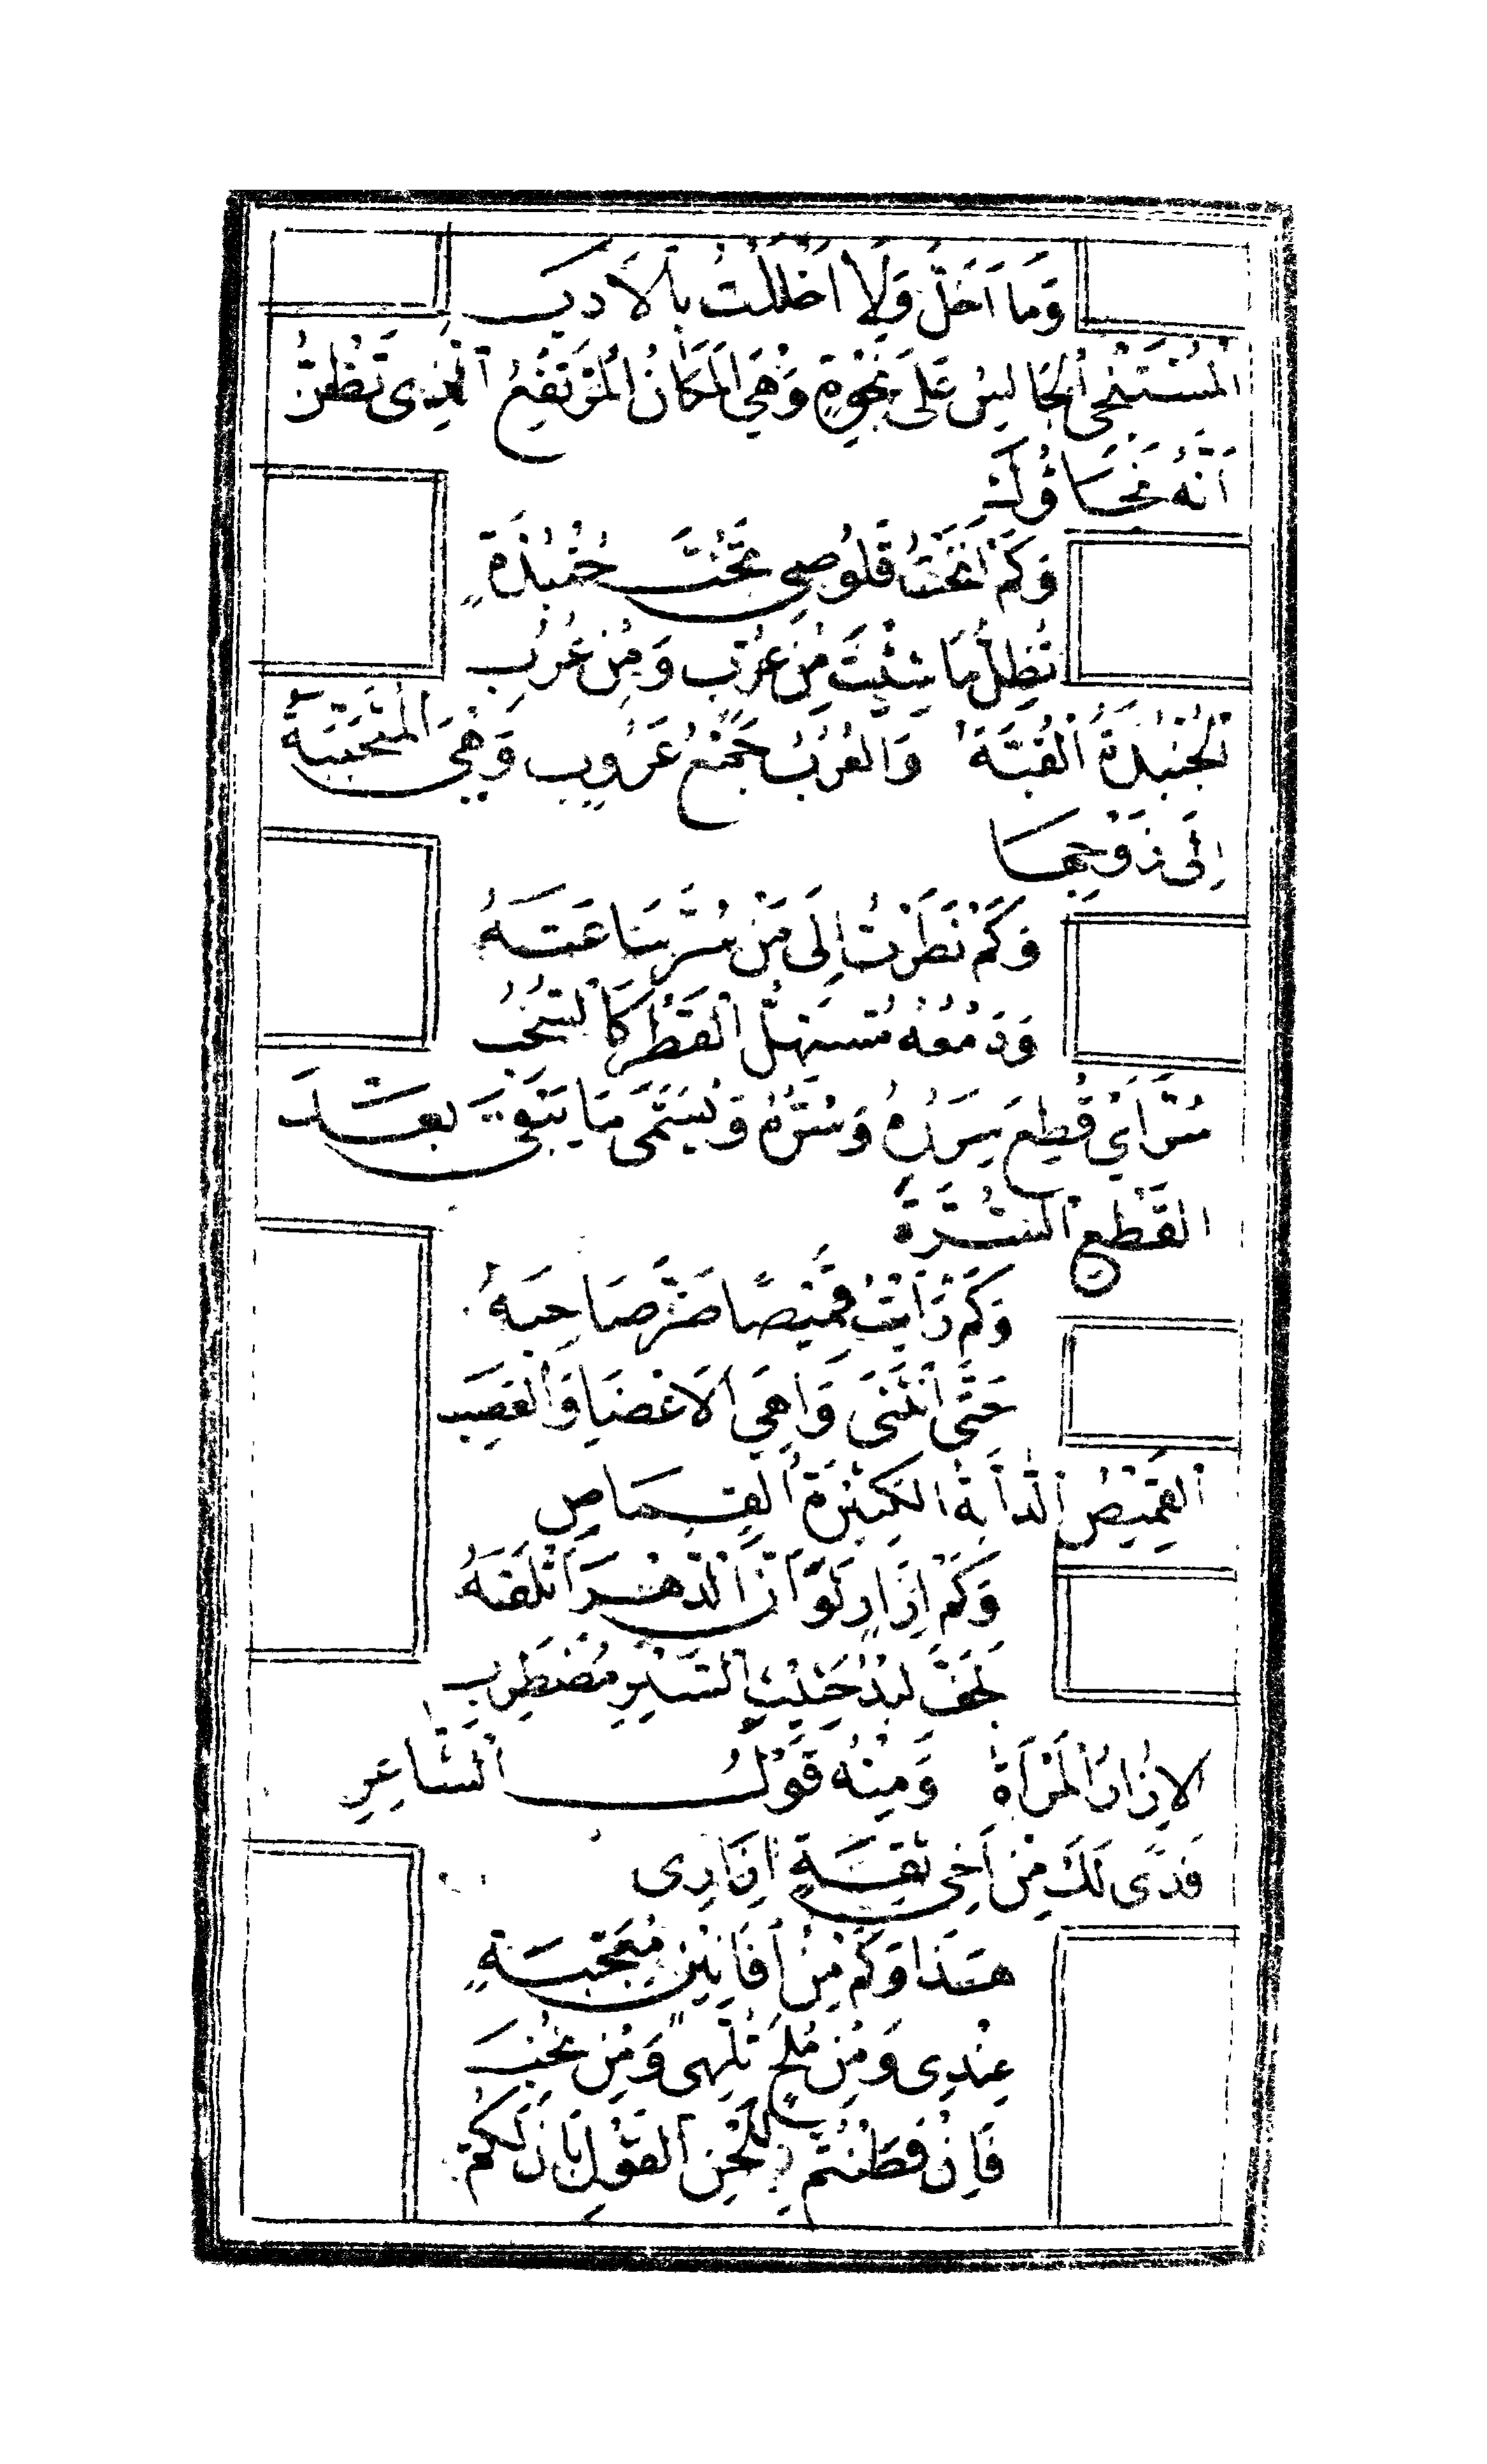 وَمَا اَخَلَّ وَلَا اَخْلَلْتُ بِالْاَدَبِ
اَلْمُسْتَنْجِي اَلْجَالِسُ عَلَى نَجْوَةٍ وَهِيَ الْمَكَانُ الْمُرْتَفِعُ الَّذِى تَظُنُّ
اَنَّهُ نَجَاؤُكَ
وَكَمْ اَنَخْتُ قَلُوصِي تَحْتَ جُنْبُذَةٍ
تُظِلُّ مَا شِئْتَ مِنْ عُرْبٍ وَمِنْ عُرُبِ
اَلْجُنْبُذَةُ الْقُبَّةُ وَالْعُرُبُ جَمْعُ عَرُوبٍ وَهِيَ الْمُتَحَبِّبَةُ
اِلَى زَوْجِهَا
وَكَمْ نَظَرْتُ اِلَى مَنْ سُرَّ سَاعَتَهُ
وَدَمْعُهُ مُسْتَهِلُّ الْقَطْرِ كَالسُّحُبِ
سُرَّ اَيْ قُطِعَ سِرَرُهُ وَسُرُّهُ وَيُسَمَّى مَا يَبْقَى بَعْدَ
الْقَطْعِ السُّرَّةُ
وَكَمْ رَاَيْتُ قَمِيْصًا ضَرَّ صَاحِبَهُ
حَتَّى انْثَنَى وَاهِيَ الْاَعْضَاءِ وَالْعَصَبِ
اَلْقَمِيْصُ الدَّابَّةُ الْكَثِيْرَةُ الْقِمَاصِ
وَكَمْ اِزَارٍ لَوْ اَنَّ الدَّهْرَ اَتْلَفَهُ
لَجَفَّ لِبْدُ حَثِيْثِ السَّيْرِ مُضْطَرِبِ
الْاِزَارُ الْمَرْاَةُ وَمِنْهُ قَوْلُ الشَّاعِرِ
فِدًى لَكَ مِنْ اَخِي ثِقَةٍ اِزَارِى
هَذَا وَكَمْ مِنْ اَفَانِيْنَ مُعْجِبَةٍ
عِنْدِى وَمِنْ مُلَحٍ تُلْهِى وَمِنْ نُخَبِ
فَاِنْ فَطَنْتُمْ لِلَحْنِ الْقَوْلِ بَانَ لَكُمْ